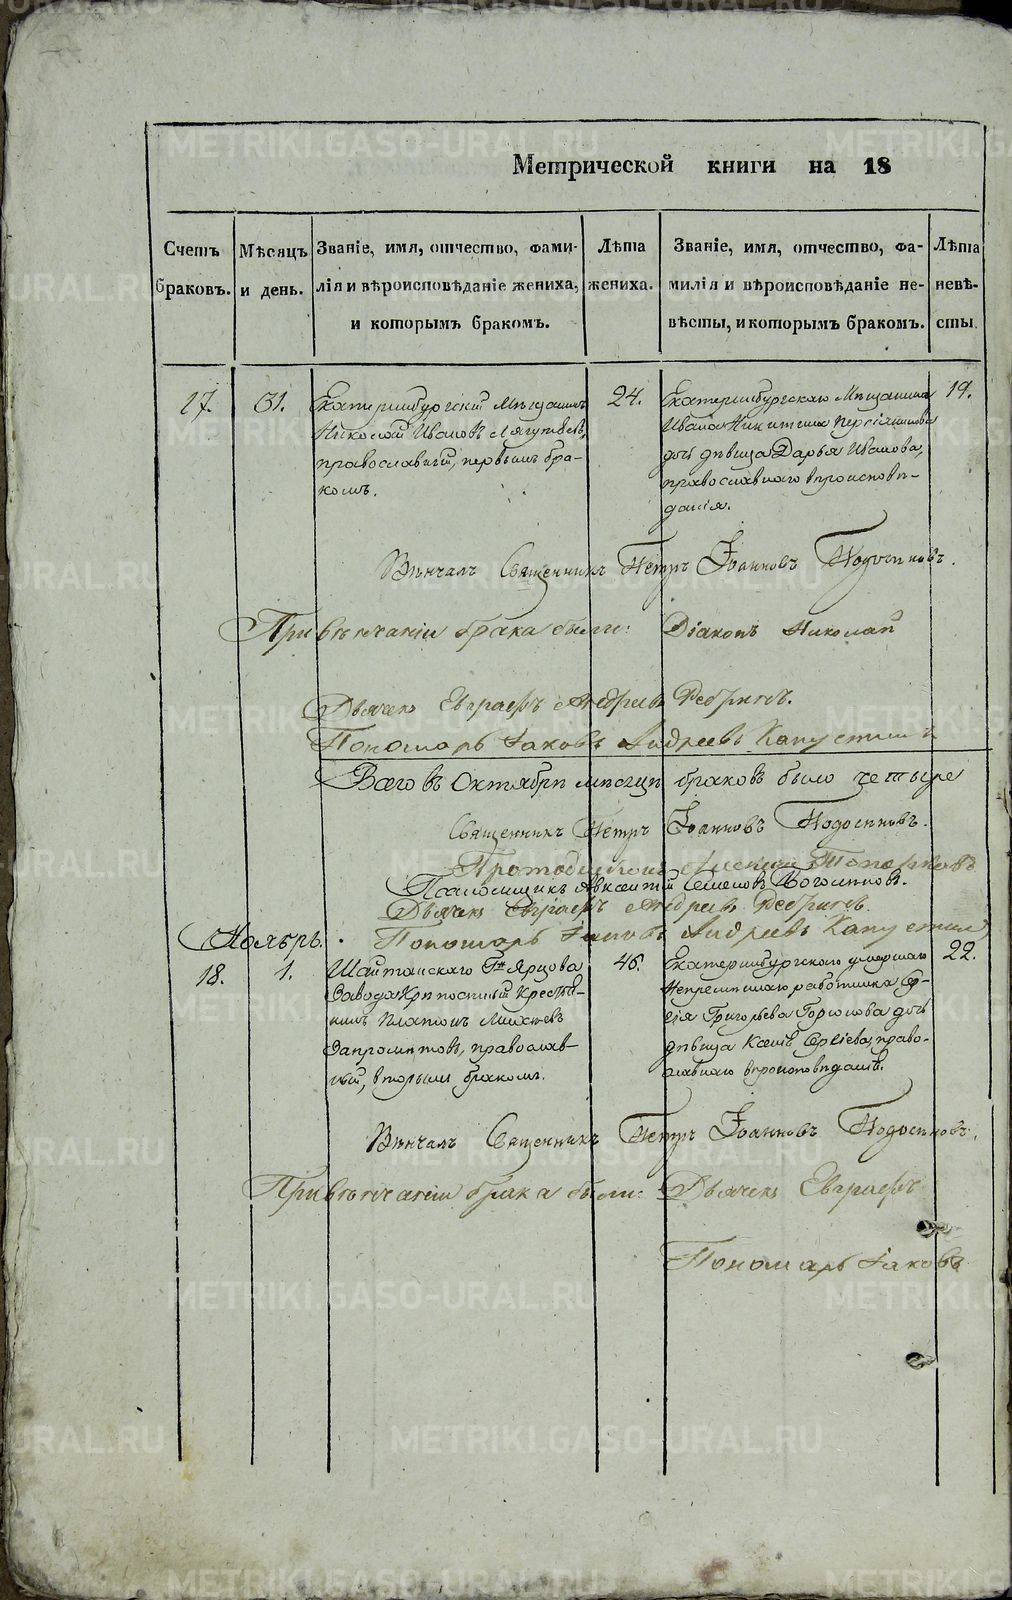 Метрической книги на 18
Счетъ браковъ.
Мѣсяцъ и день.
Званіе, имя, отчество, фами-
лія и вѣроисповѣданіе жениха,
и которымъ бракомъ.
Лѣта
жениха.
Званіе, имя, отчество, фа-
милія и вѣроисповѣданіе не-
вѣсты, и которымъ бракомъ.
Лѣта
невѣ-
сты.
17.
31.
Екатеринбургскій Мѣщанинъ
Николай Ивановъ
православный, первымъ бра-
комъ.
24.
Екатеринбургскаго Мѣщанина
Ивана Никитина
дочь дѣвица Дарья Иванова,
православнаго вѣроисповѣ-
данія.
19.
Вѣнчалъ Священникъ Петръ Іоанновъ Подосиновъ.
При вѣнчаніи брака были: Діаконъ Николай
Дьячекъ Евграфъ Андреевъ Ребринъ.
Пономарь Іаковъ Андреевъ Капустинъ
Всего въ Октябрѣ месяцѣ браковъ было четыре
Священникъ Петръ Іоанновъ Подосиновъ.
Протодіаконъ Алексій Топорковъ
Псаломщикъ Авксентій Семеновъ Богомоловъ.
Дьячекъ Евграфъ Андреевъ Ребринъ.
Пономарь Іаковъ Андреевъ Капустинъ
Ноябрь.
18.
1.
Шайтанскаго Гна Ярцова
Завода Крѣпостный Крестья-
нинъ Платонъ
православ-
ный, вторымъ бракомъ.
46.
Екатеринбургскаго умершаго
Непремѣннаго работника Сер-
гія Григорьева дочь
дѣвица Сергіева, право-
славнаго вѣроисповѣданія.
22.
Вѣнчалъ Священникъ Петръ Іоанновъ Подосиновъ.
При вѣнчаніи брака были: Дьячекъ Евграфъ
Пономарь Іаковъ
METRIKI.GASO-URAL.RU